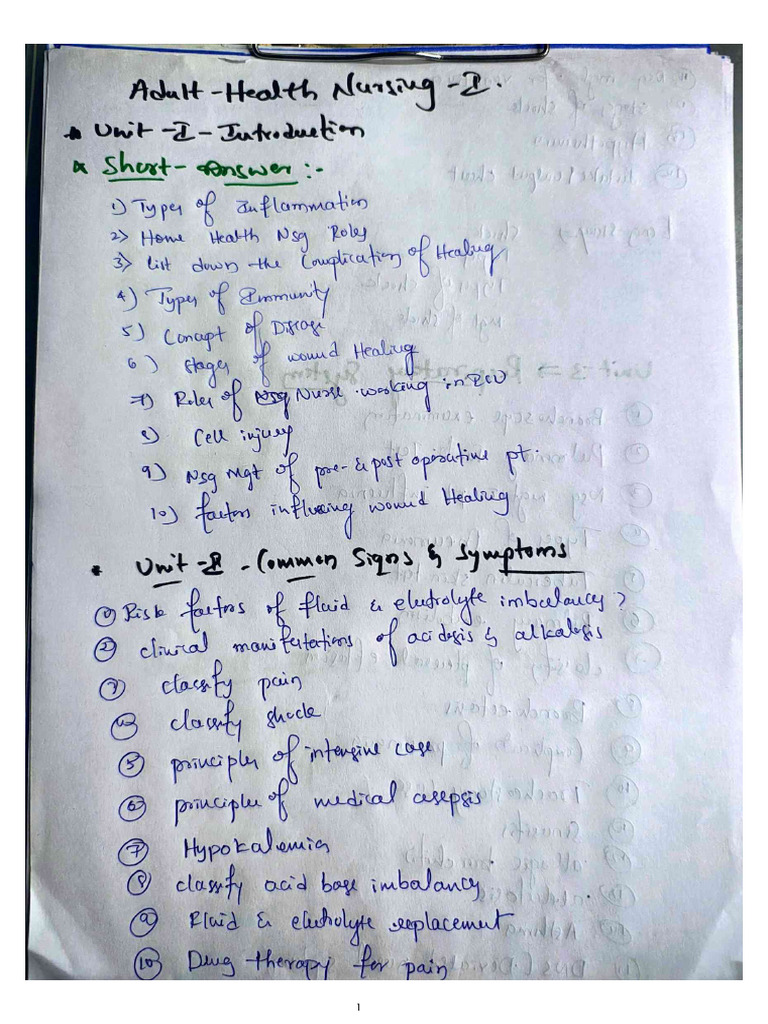 Adult-Health Nursing-I.
* Unit-I-Introduction
* Short-answer:-
1) Types of Inflammation
2) Home Health Nsg Roles
3) List down the Complication of Healing
4) Types of Immunity
5) Concept of Disease
6) Stages of wound Healing
7) Roles of Nsg Nurse working in ICU
8) Cell injury
9) Nsg Mgt of pre-& post operative pt.
10) factors influxing wound Healing
* Unit-II-Common Signs & Symptoms
① Risk factors of fluid & elutrolyte imbalancy?
② clinical manifestations of acidosis & alkalosis
③ classify pain
④ classify shock
⑤ principles of intensive case
⑥ principle of medical asepsis
⑦ Hypokalemia
⑧ classify acid base imbalancy
⑨ Fluid & elutrolyte replacement
⑩ Drug therapy for pain
1